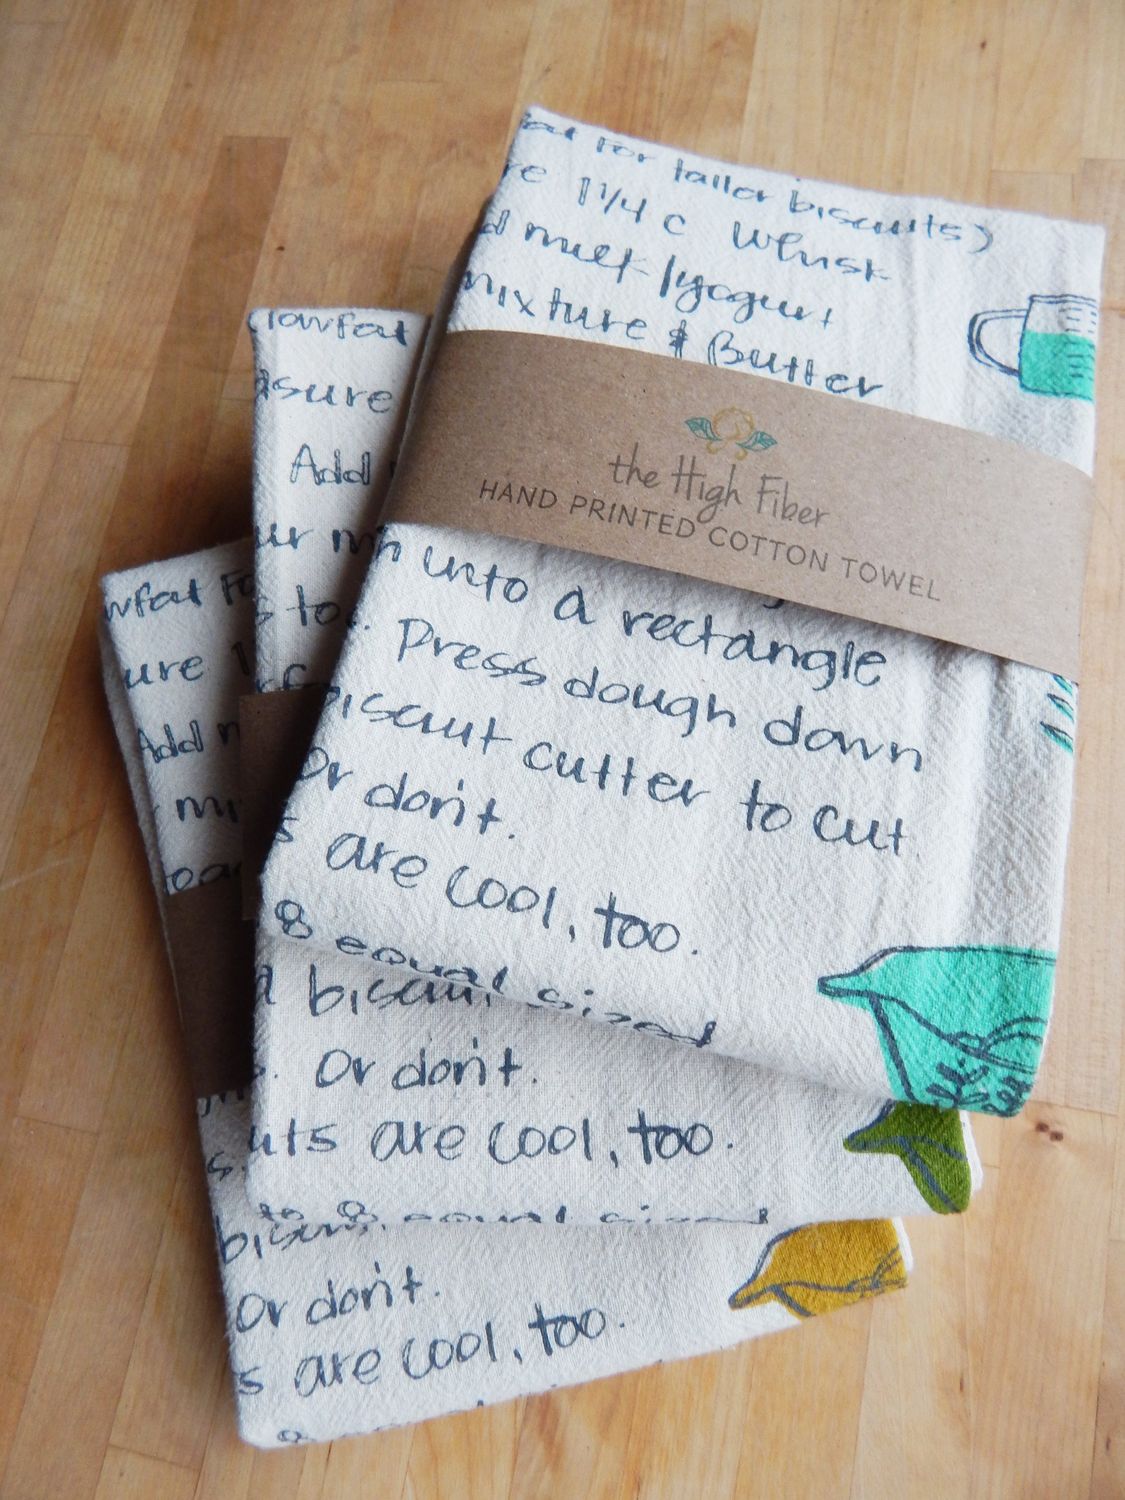 for taller biscuits)
1 1/4 c Whisk
milk/yogurt
mixture & Butter
the High Fiber
HAND PRINTED COTTON TOWEL
into a rectangle
Press dough down
biscuit cutter to cut.
Or don't.
s are cool, too.
8 equal sized
lowfat
asure
Add
biscuit
Or don't.
uits are cool, too.
to 8 equal sized
wfat Fo
ure 1
Add m
Or don't.
s are cool, too.